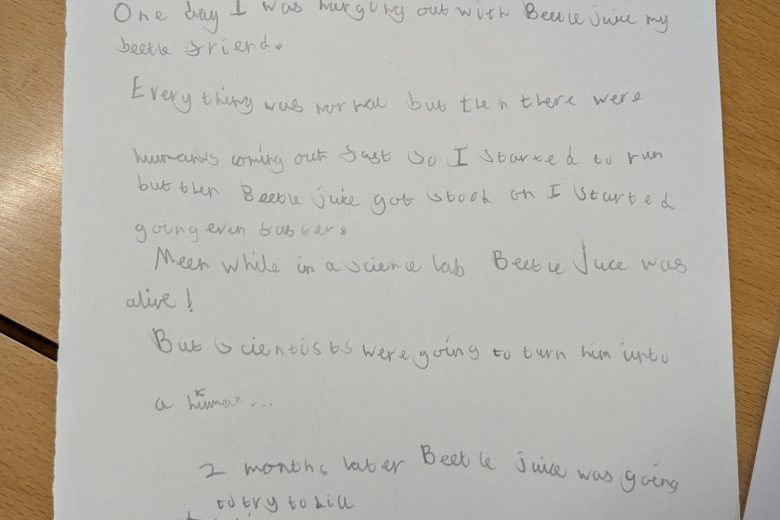 One day I was hurgung out with Beetle juice my
beetle friend.
Every thing was normal but then there were
humans coming out fast so I started to run
but then Beetle juice got stood on I started
going even faster.
Meen while in a science lab Beetle Juce was
alive!
But scientists were going to turn him into
a human...
2 months later Beetle juice was going
to try to kill